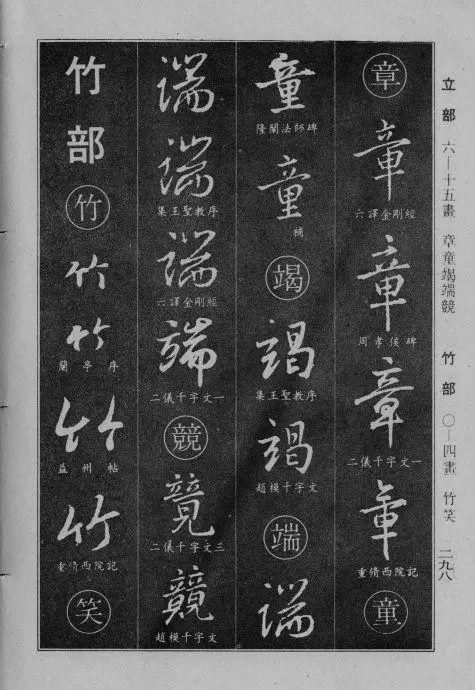 立部 六—十五畫 章童竭端競 竹部 〇—四畫 竹笑 二九八
章
章
六譯金剛經
章
周孝侯碑
章
二儀千字文一
章
重脩西院記
童
童
隆闡法師碑
童
補
竭
竭
集王聖教序
竭
趙模千字文
端
端
端
端
集王聖教序
端
六譯金剛經
端
二儀千字文一
競
競
二儀千字文三
競
趙模千字文
竹部
竹
竹
竹
蘭亭序
竹
益州帖
竹
重脩西院記
笑